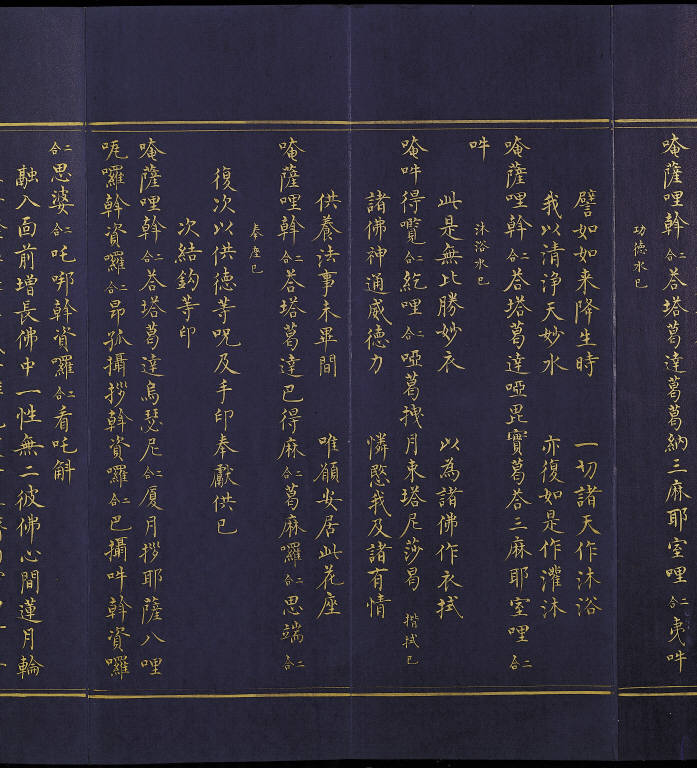 唵薩哩斡二合荅塔葛達葛葛納三麻耶室哩二合夷吽
功德水已
譬如如来降生時 一切諸天作沐浴
我以清淨天妙水 亦復如是作灌沐
唵薩哩斡二合荅塔葛達啞毘實葛荅三麻耶室哩二合
吽
沐浴水已
此是無比勝妙衣 以為諸佛作衣拭
唵吽得囕二合紇哩二合啞葛拽月束塔尼莎曷 揩拭已
諸佛神通威德力 憐愍我及諸有情
供養法事未畢間 唯願安居此花座
唵薩哩斡二合荅塔葛達巴得麻二合葛麻囉二合思端二合
奏座已
復次以供德等呪及手印奉獻供已
次結鈎等印
唵薩哩斡二合荅塔葛達烏瑟尼二合厦月拶耶薩八哩
咓囉斡資囉二合昂孤攝拶斡資囉二合巴攝吽斡資囉
二合思婆二合吒㖿斡資囉二合看吒斛
融入面前增長佛中一性無二彼佛心間蓮月輪